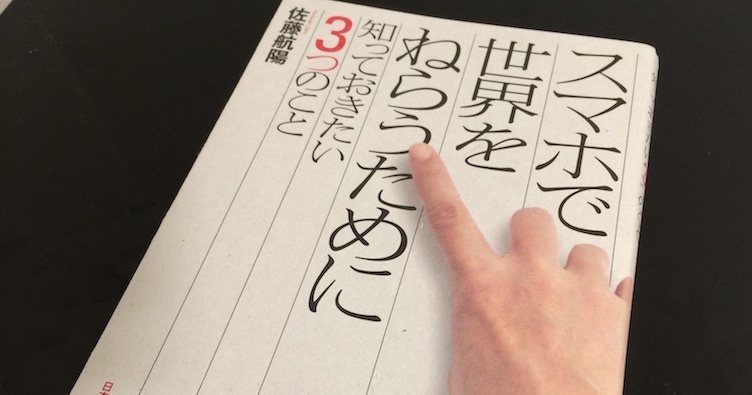 スマホで
世界を
ねらうために
知っておきたい
3つのこと
佐藤航陽